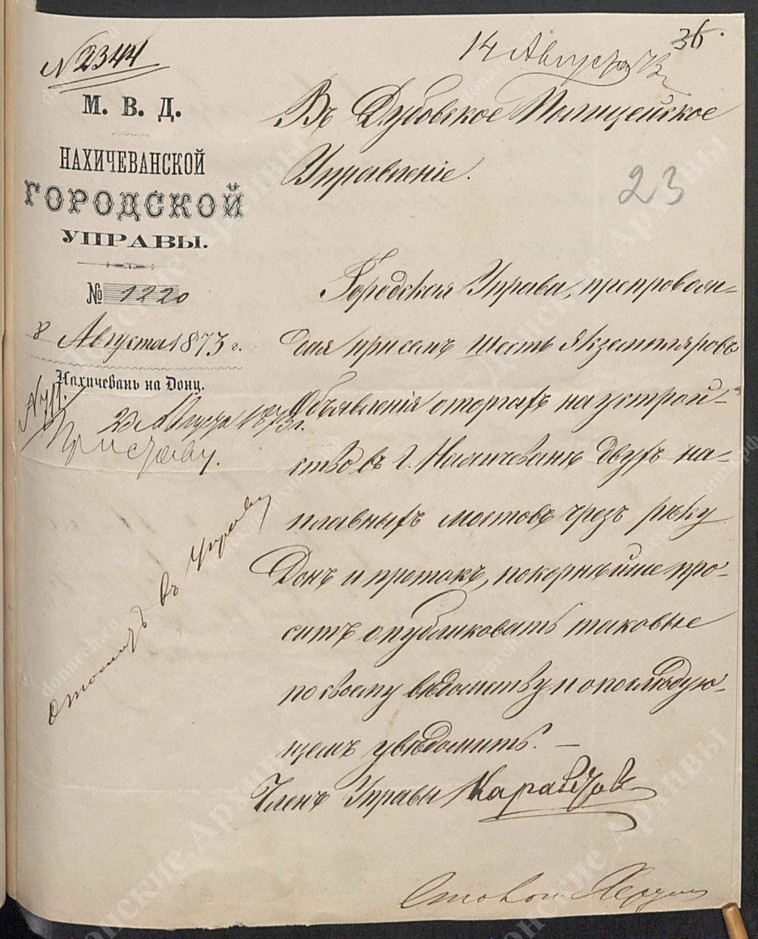 N 2344
14 Августа 73
36.
М. В. Д.
НАХИЧЕВАНСКОЙ
ГОРОДСКОЙ
УПРАВЫ.
№ 1220
8 Августа 1873 г.
Нахичевань на Дону.
N 711.
23 Августа 1873 г.
Приставу.
Въ Дубовское Полицейское
Управленіе.
23
Городская Управа, препровож-
дая при семъ шесть экземпляровъ
объявленія о торгахъ на устрой-
ство въ г. Нахичевани двухъ на-
плавныхъ мостовъ чрезъ реку
Донъ и протокъ, покорнѣйше про-
ситъ опубликовать таковые
по своему вѣдомству и о послѣдую-
щемъ увѣдомить. —
Членъ Управы
въ Управу